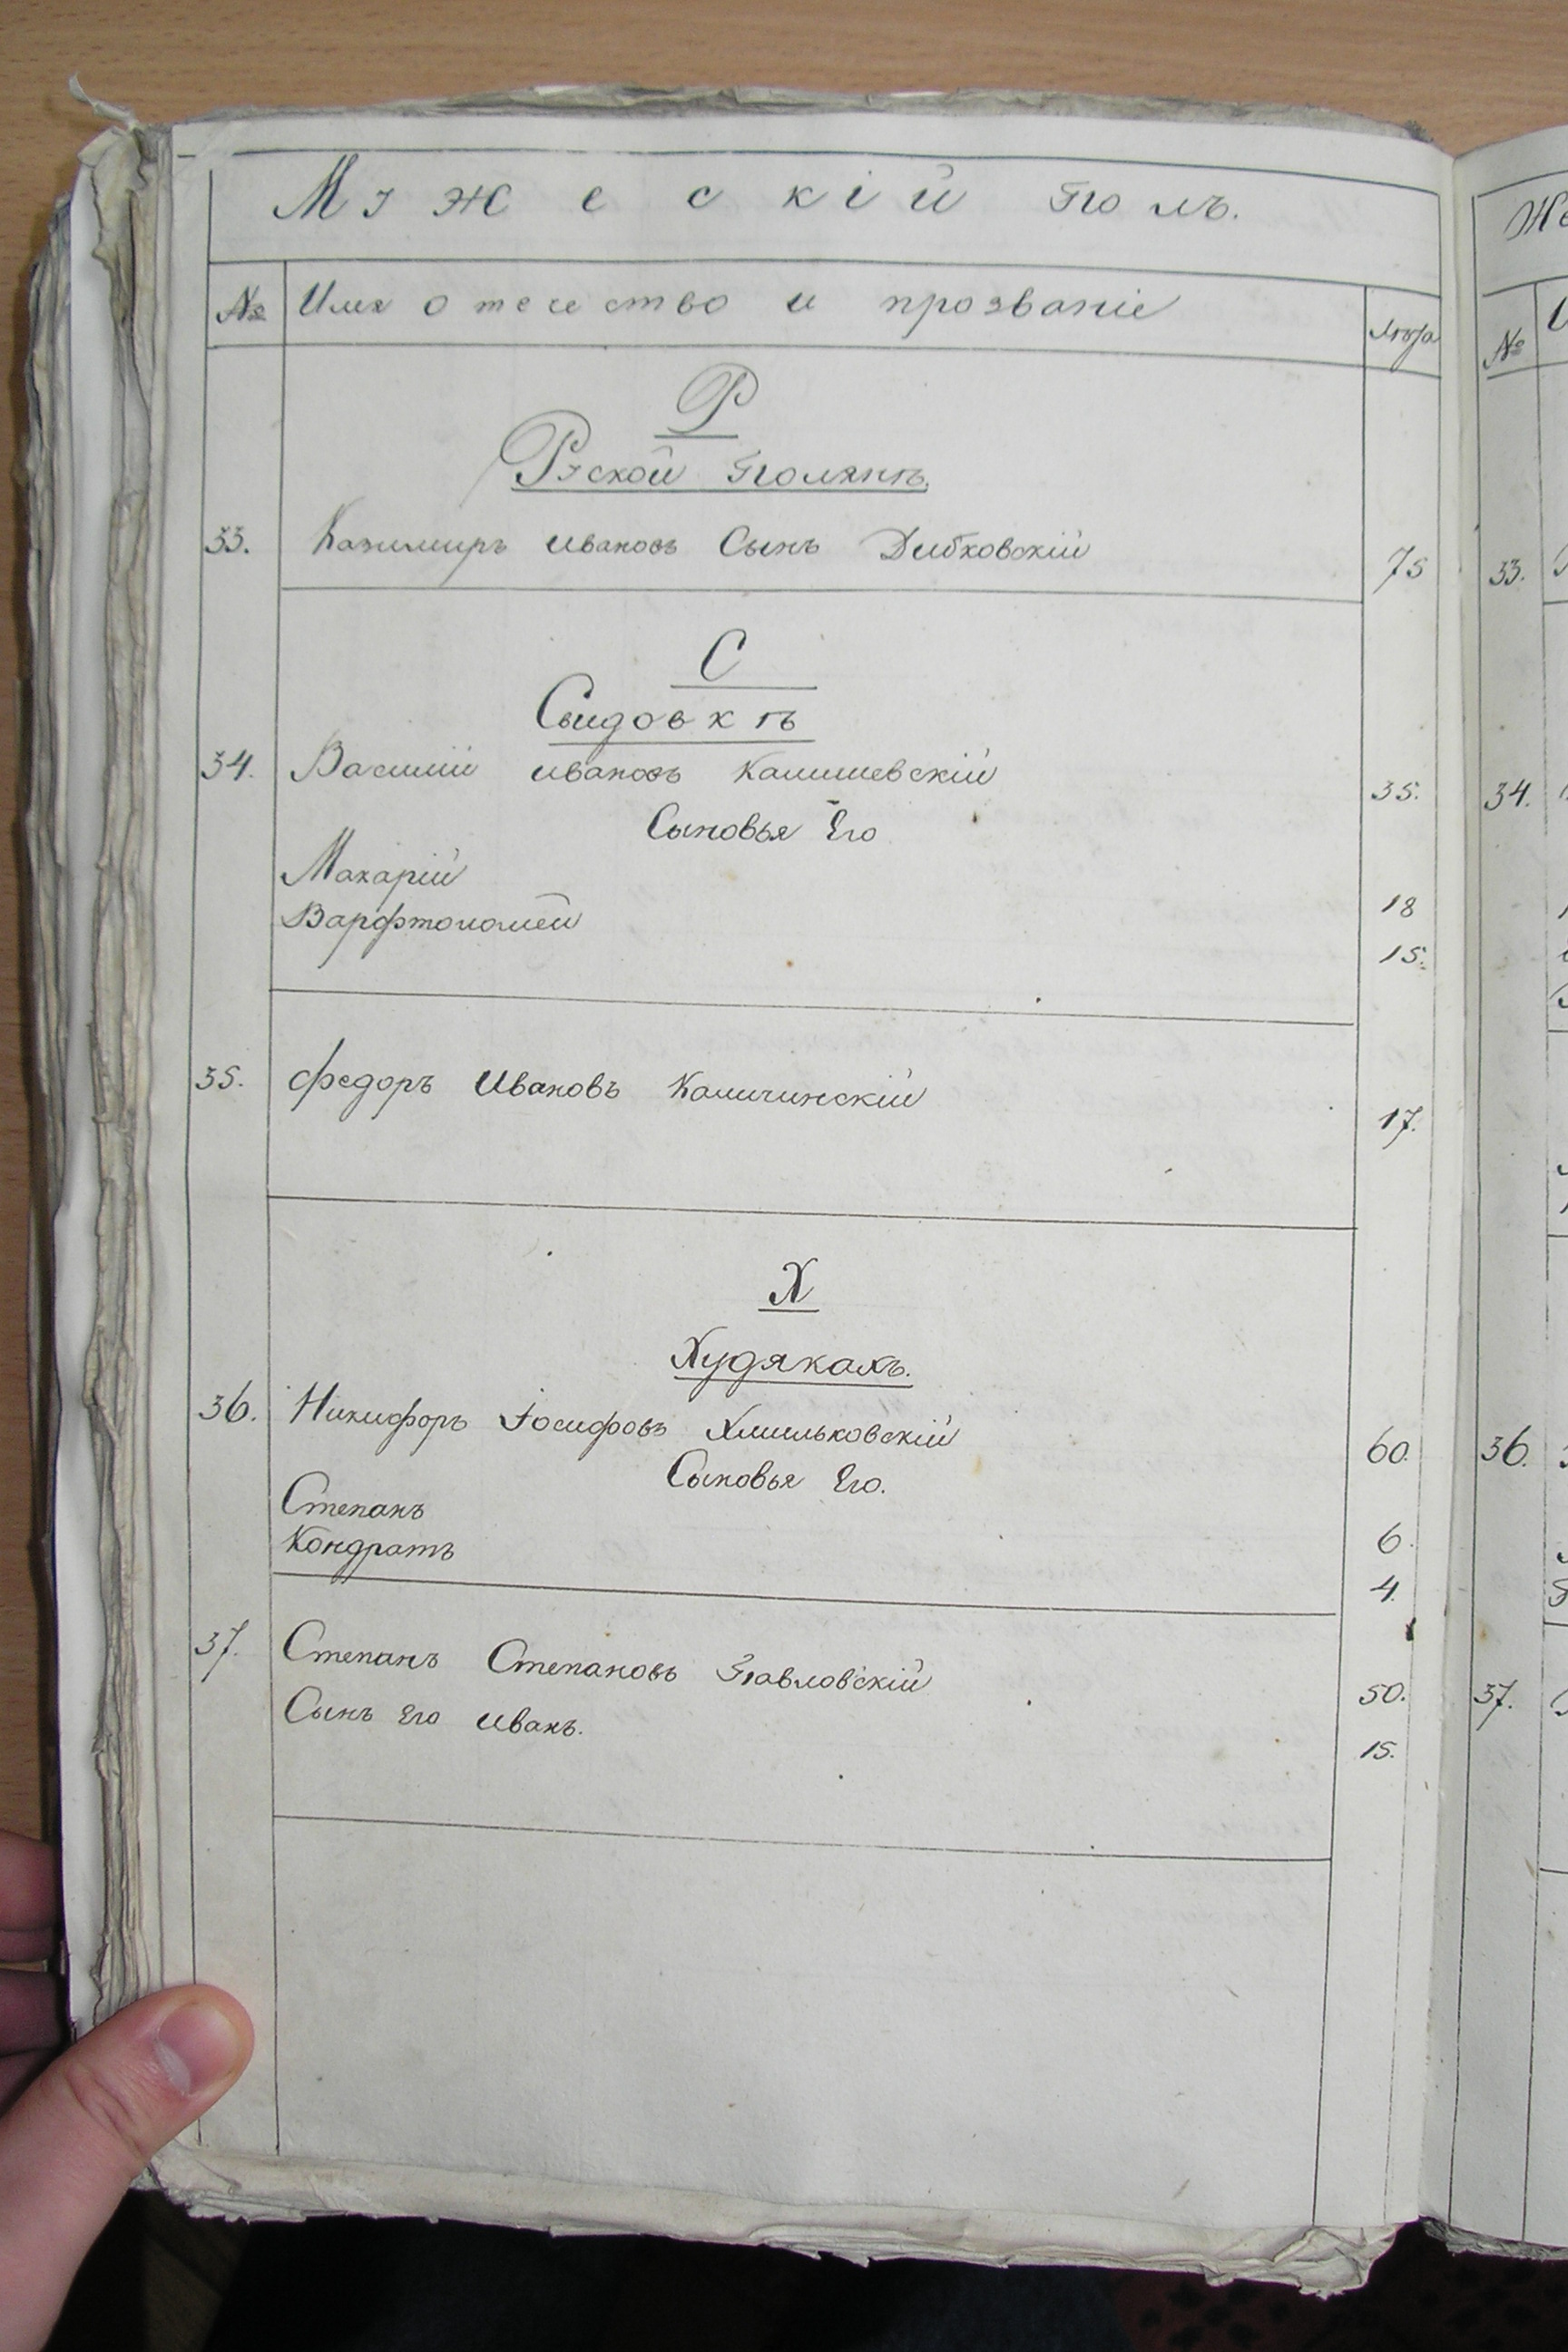 Мужескій полъ.
№ Имя отечество и прозваніе Лѣта
Р
Руской Полянѣ.
33. Казимиръ Ивановъ Сынъ Дибковскій 75
С
Свидовкѣ
34. Василій Ивановъ Калишевскій 35.
Сыновья Его
Макарій 18
Варфтоломей 15.
35. Федоръ Ивановъ Каличинскій 17.
Х
Худякахъ.
36. Никифоръ Іосифовъ Хмильковскій 60.
Сыновья Его.
Степанъ 6.
Кондратъ 4.
37. Степанъ Степановъ Павловскій 50.
Сынъ Его Иванъ. 15.
Же
№
33.
34.
36.
37.